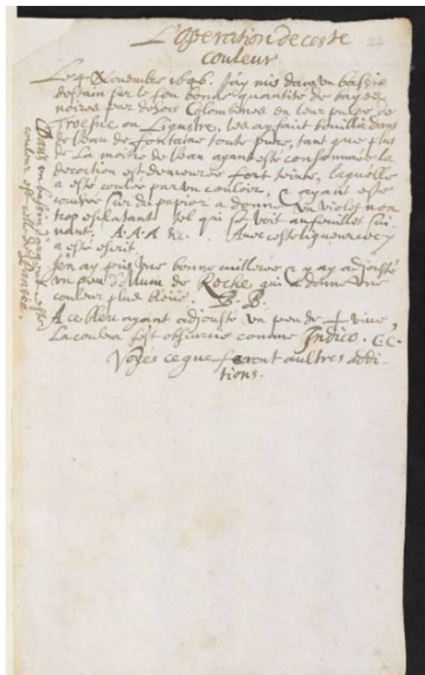 L'Operation de ceste
couleur
24
Le 4 Novembre 1646. J'ay mis dans un bassin
destain sur le feu bonne quantité de bayes
noires par dehors Colombines en leur pulpe de
Troesne ou Ligustre, les ay fait bouillir dans
de leau de fontaine toute pure, tant que plus
de La moitie de leau ayant esté consommée la
decoction est demeurée fort teinte, laquelle
a esté coulée par un couloir, & ayant esté
couchée sur du papier a donné un violet non
trop esclatant tel qui se voit au feuillet sui-
nant. A.A.A &c. Avec ceste liqueur cecy
a esté escrit.
J'en ay pris une bonne cuilleree & y ay adjousté
un peu d'Alum de Roche qui a donné une
couleur plus bleüe. B.B.
A ce bleu ayant adjousté un peu de
La couleur sest obscurcie comme Indico. C.C.
Voyes ce que feront aultres addi-
tions.
Dans un bassin d'argent ceste
couleur est celle de Pansée.